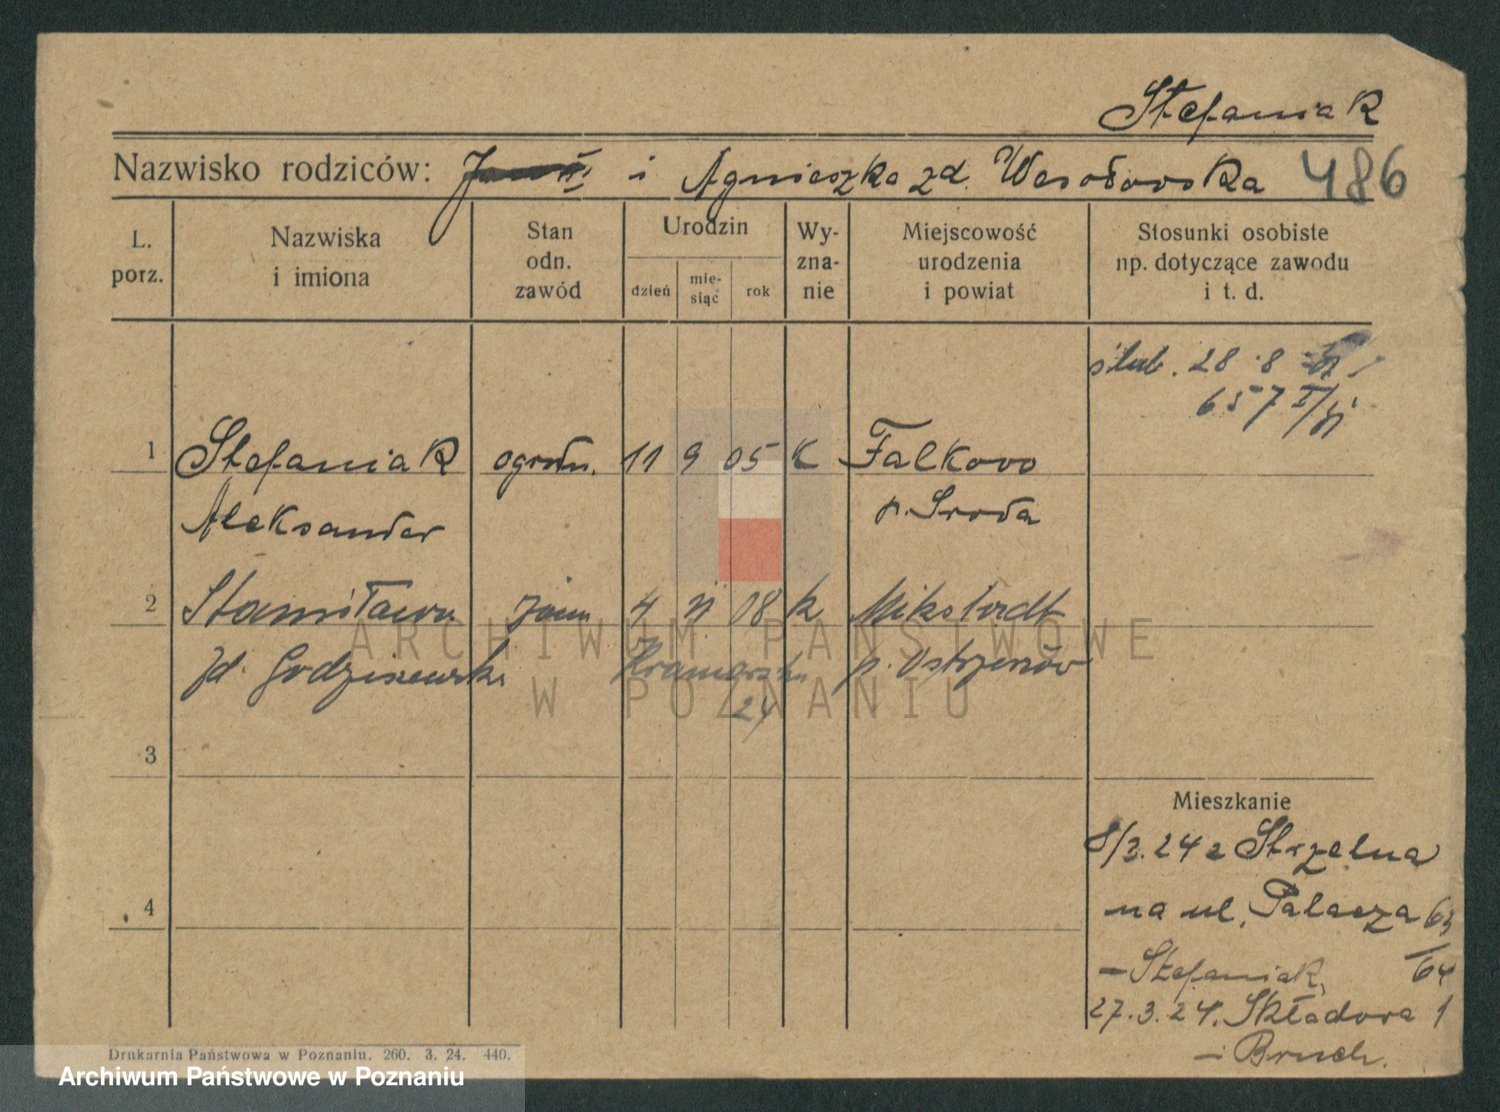 Stefaniak
Nazwisko rodziców: i Agnieszka zd. Wesołowska 486
L. porz.
Nazwiska i imiona
Stan odn. zawód
Urodzin
dzień
mie-siąc
rok
Wy-zna-nie
Miejscowość urodzenia i powiat
Stosunki osobiste np. dotyczące zawodu i t. d.
ślub. 28 8
657 I/
1 Stefaniak ogrodn. 11 9 05 K Falkowo
Aleksander p. Sroda
2 Stanisława 4 08 k Mikstadt
zd. Godziszewska Kramarska p. Ostrzeszów
24
3
Mieszkanie
8/3.24 z Strzelna
4 na ul. Palacza 63
/64
- Stefaniak,
27.3.24. Składowa 1
- Bruch.
Drukarnia Państwowa w Poznaniu. 260. 3. 24. 440.
ARCHIWUM PAŃSTWOWE
W POZNANIU
Archiwum Państwowe w Poznaniu